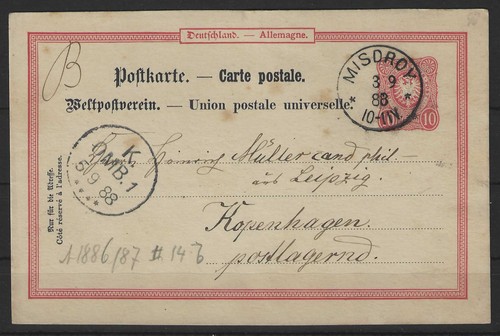 Deutschland. — Allemagne.
B
Postkarte. — Carte postale.
Weltpostverein. — Union postale universelle.
MISDROY
3 9
88
* 10-11V. *
10
K
OMB.1
5/9 88
Herrn Heinrich Müller cand phil
aus Leipzig.
Kopenhagen.
postlagernd.
Nur für die Adresse.
Côté réservé à l'adresse.
A1886/87 # 14 b